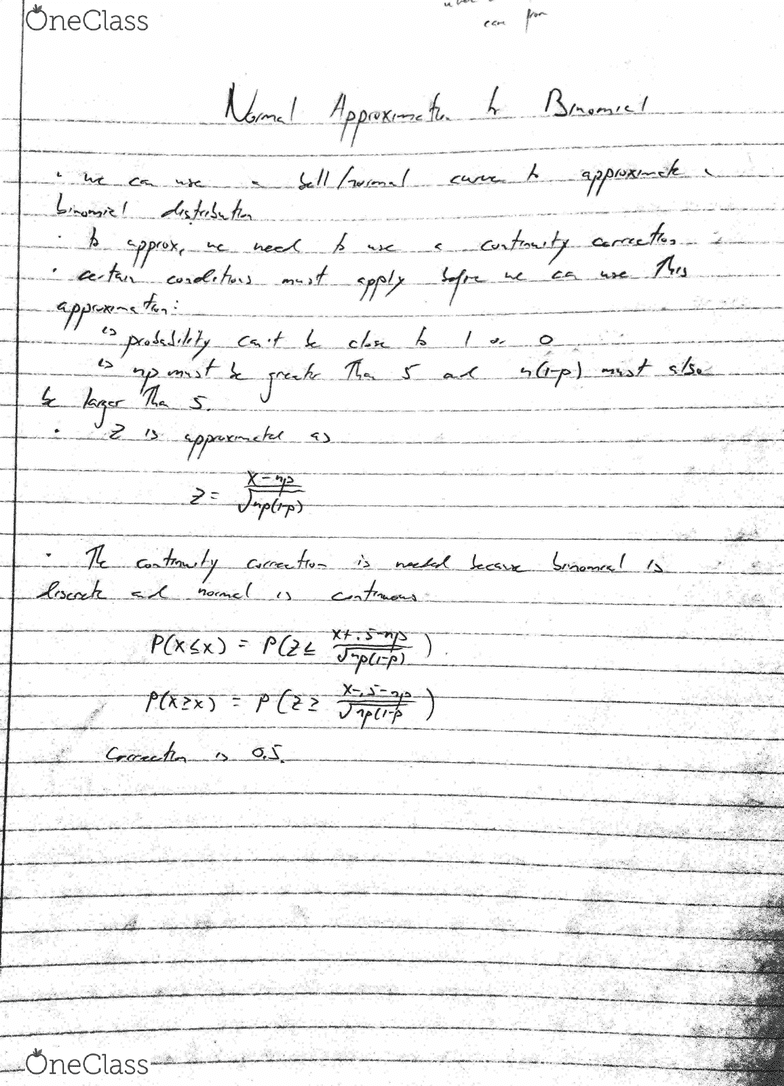 OneClass
can from
Normal Approximation to Binomial
· we can use a bell/normal curve to approximate a
binomial distribution
· to approx, we need to use a continuity correction
· certain conditions must apply before we can use this
approximation:
↳ probability can't be close to 1 or 0
↳ np must be greater than 5 and n(1-p) must also
be larger than 5.
· Z is approximated as
Z = x-np / √np(1-p)
· The continuity correction is needed because binomial is
discrete and normal is continuous
P(X≤x) = P(Z≤ x+.5-np / √np(1-p) ).
P(X≥x) = P(Z≥ x-.5-np / √np(1-p )
Correction is 0.5.
OneClass